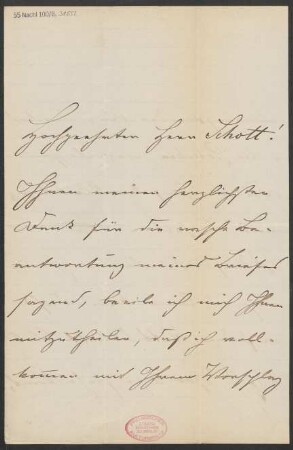 Hochgeehrter Herr Schott!
Ihnen meinen herzlichsten
Dank für die rasche Be-
antwortung meines Briefes
sagend, beeile ich mich Ihnen
mitzutheilen, daß ich voll-
kommen mit Ihrem Vorschlag